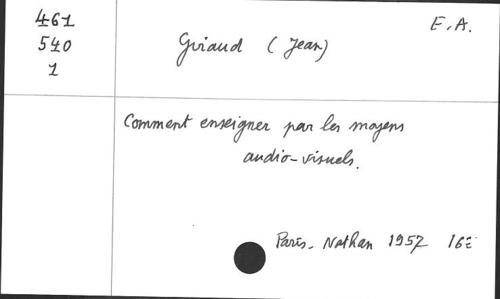 461
540
1
E.A.
Guiaud (Jean)
Comment enseigner par les moyens
audio-visuels.
Paris - Nathan 1957 16º